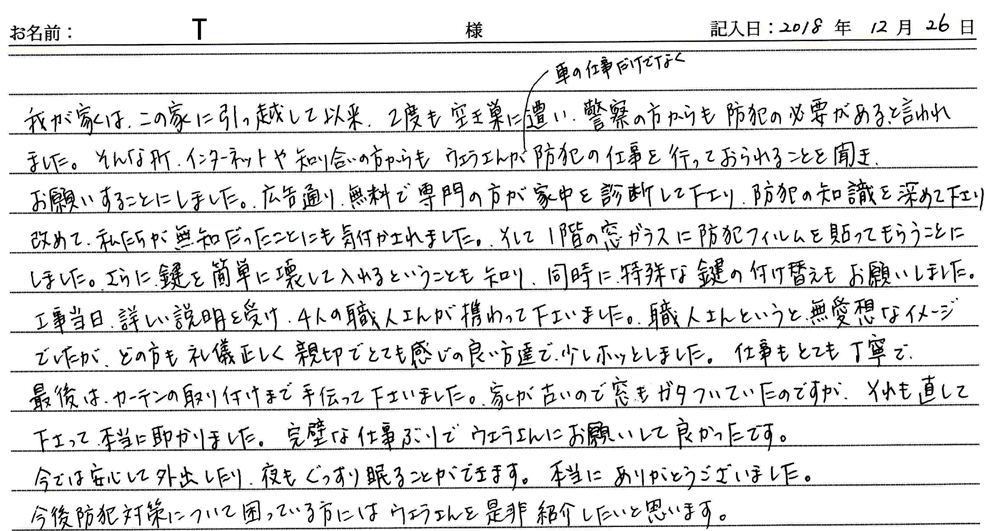 お名前： T 様 記入日：2018 年 12 月 26 日
車の仕事だけでなく
我が家は、この家に引っ越して以来、2度も空き巣に遭い、警察の方からも防犯の必要があると言われ
ました。そんな所、インターネットや知り合いの方からもウエラさんが防犯の仕事を行っておられることを聞き、
お願いすることにしました。広告通り、無料で専門の方が家中を診断して下さり、防犯の知識を深めて下さり
改めて、私たちが無知だったことにも気付かされました。そして1階の窓ガラスに防犯フィルムを貼ってもらうことに
しました。さらに、鍵を簡単に壊して入れるということも知り、同時に、特殊な鍵の付け替えもお願いしました。
工事当日、詳しい説明を受け、4人の職人さんが携わって下さいました。職人さんというと無愛想なイメージ
でしたが、どの方も礼儀正しく親切でとても感じの良い方達で、少しホッとしました。仕事もとても丁寧で、
最後は、カーテンの取り付けまで手伝って下さいました。家が古いので窓もガタついていたのですが、それも直して
下さって本当に助かりました。完璧な仕事ぶりでウエラさんにお願いして良かったです。
今では安心して外出したり、夜もぐっすり眠ることができます。本当にありがとうございました。
今後防犯対策について困っている方にはウエラさんを是非紹介したいと思います。